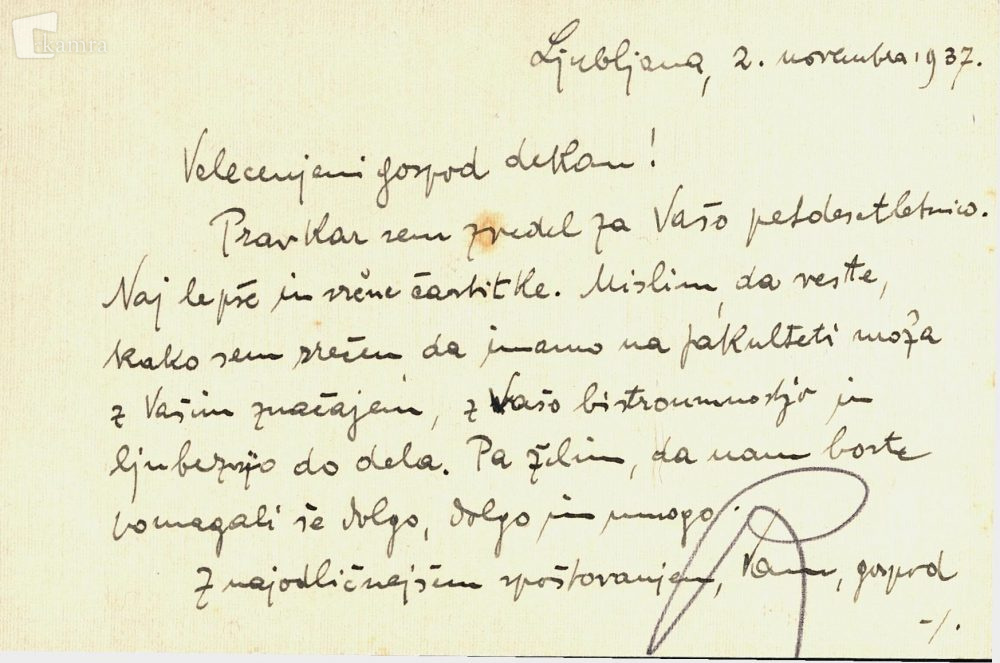 kamra
Ljubljana, 2. novembra 1937.
Velecenjeni gospod dekan!
Pravkar sem zvedel za Vašo petdesetletnico.
Najlepše in srčne častitke. Mislim, da veste,
kako sem srečen, da imamo na fakulteti moža
z Vašim značajem, z Vašo bistroumnostjo in
ljubeznijo do dela. Pa želim, da nam boste
pomagali še dolgo, dolgo in mnogo.
Z najodličnejšim spoštovanjem, Vam, gospod
-/.